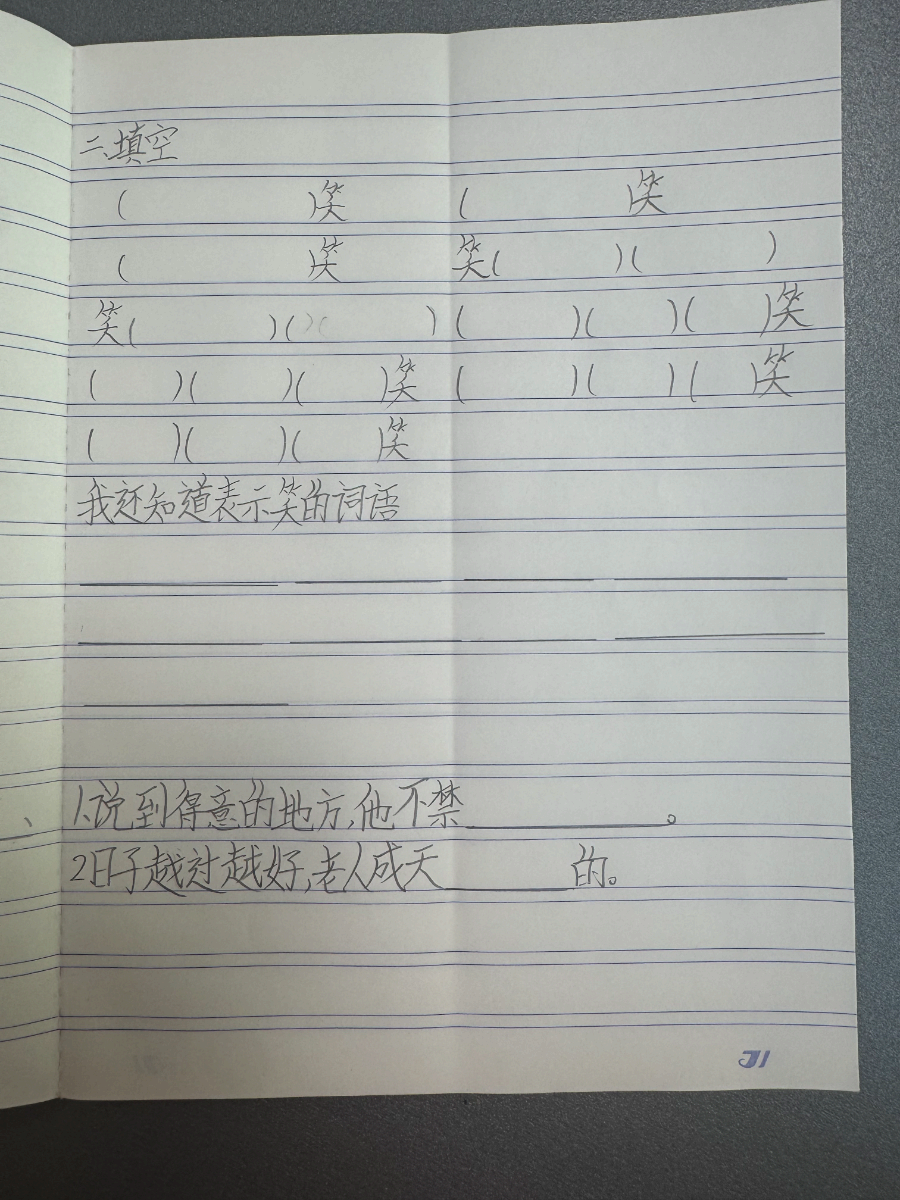 二、填空
(  )笑 (  )笑
(  )笑 笑(  )(  )
笑(  )(  ) (  )(  )(  )笑
(  )(  )(  )笑 (  )(  )(  )笑
(  )(  )(  )笑
我还知道表示笑的词语
1.说到得意的地方,他不禁______。
2日子越过越好,老人成天______的。
31